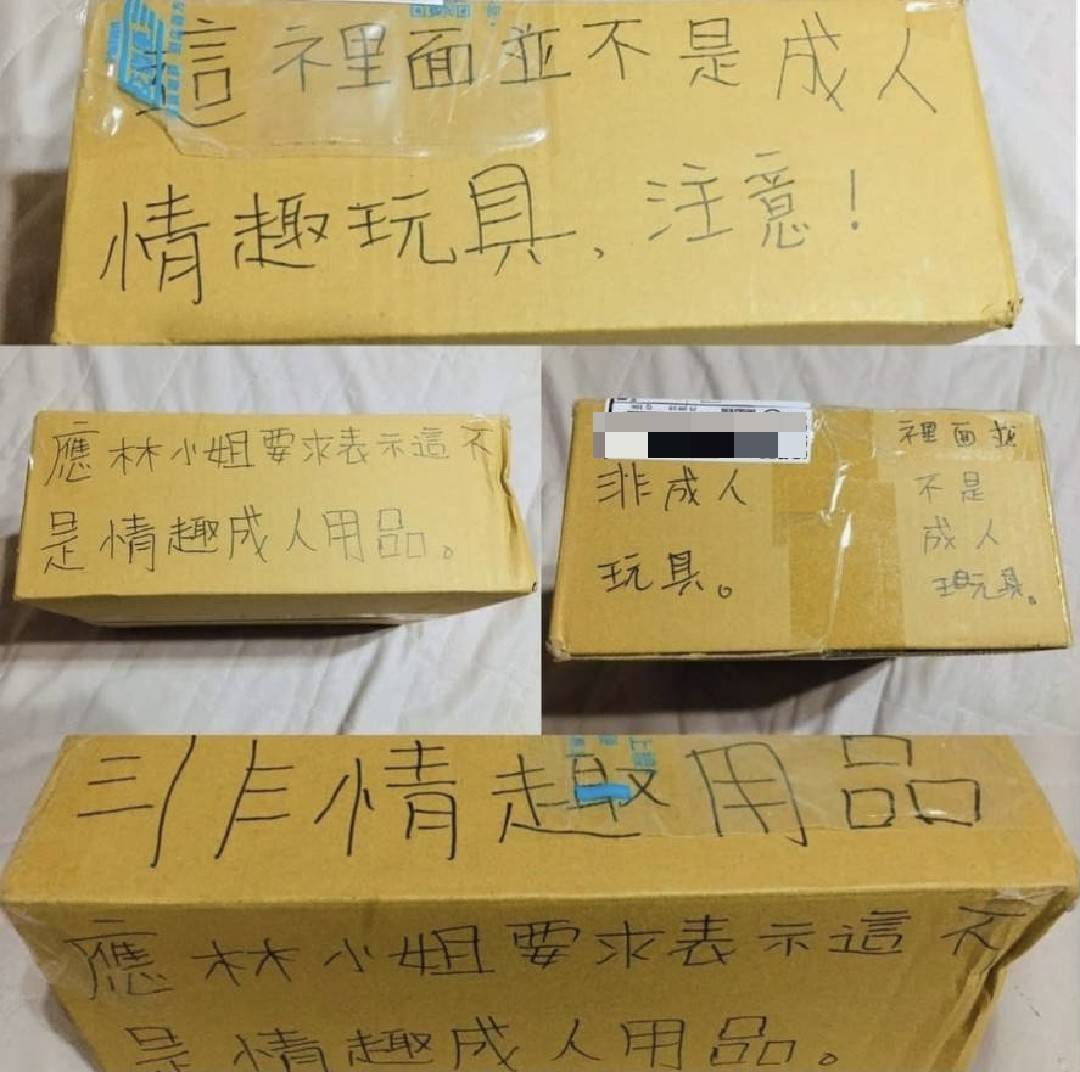 這裡面並不是成人
情趣玩具、注意！
應林小姐要求表示這不
是情趣成人用品。
非成人
玩具。
裡面並
不是
成人
玩具。
非情趣用品
應林小姐要求表示這不
是情趣成人用品。